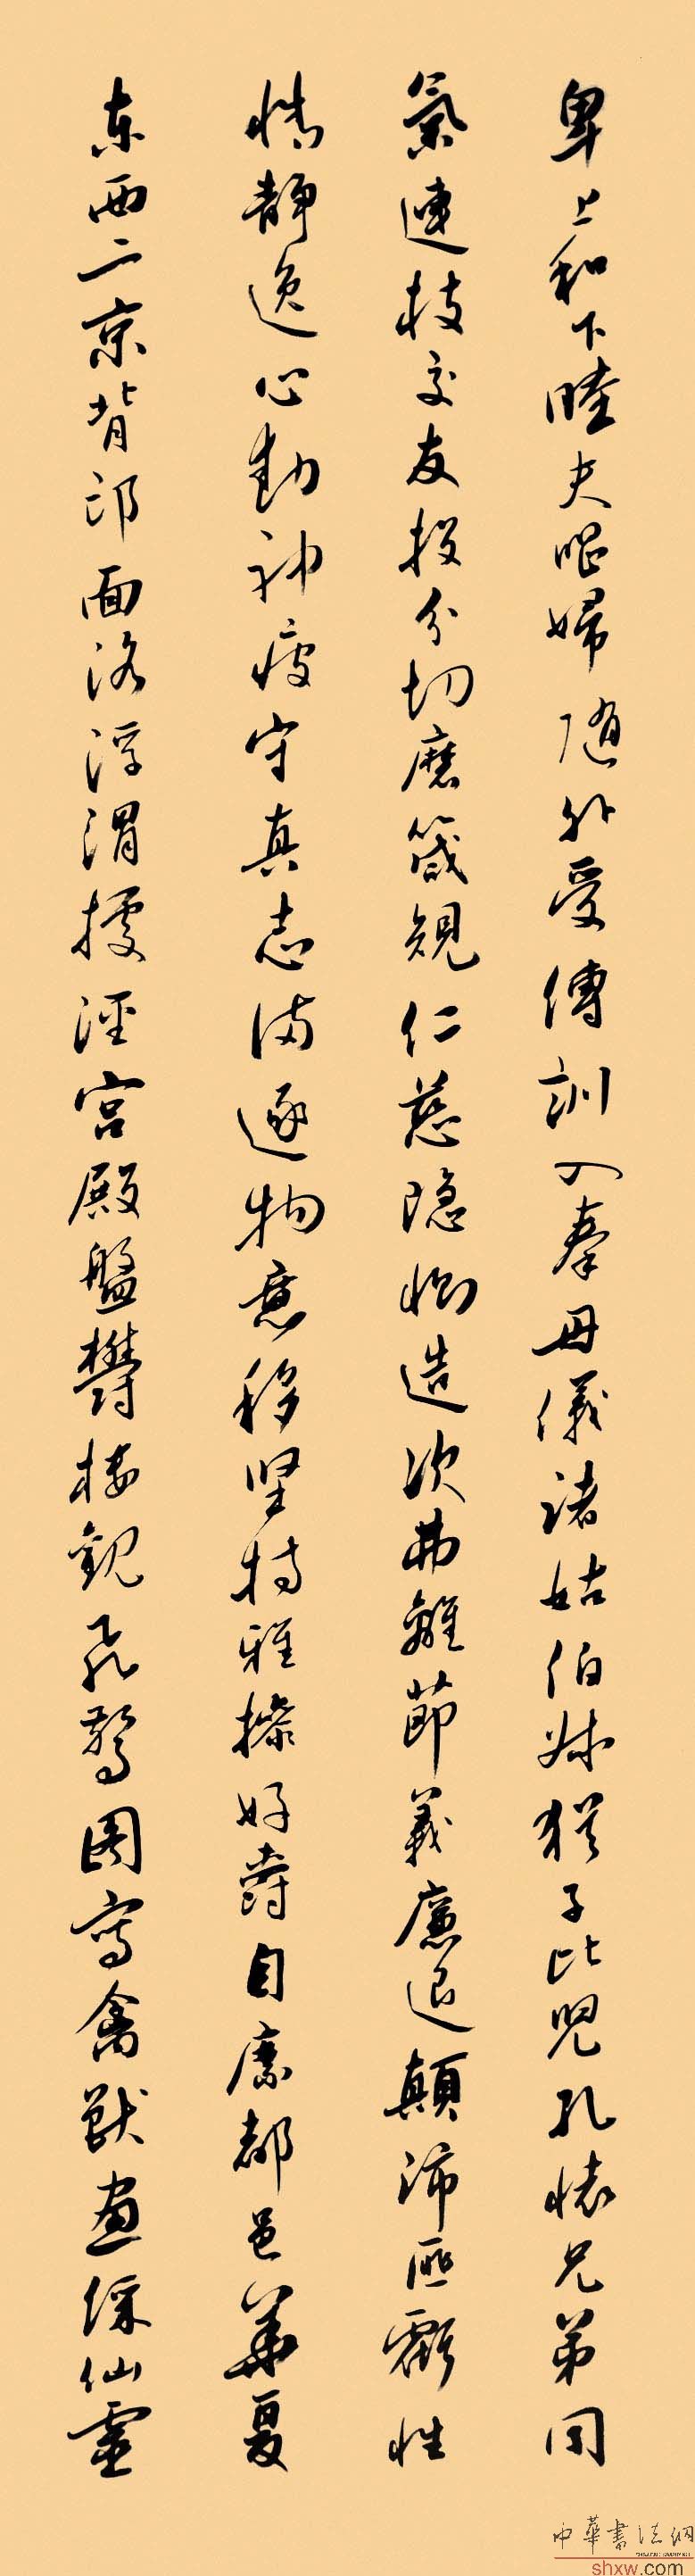 卑上和下睦夫唱婦随外受傅訓入奉母儀諸姑伯妹猶子比児孔懐兄弟同
氣連枝交友投分切磨箴規仁慈隐惻造次弗離節義廉退顛沛匪虧性
情靜逸心動神疲守真志满逐物意移坚持雅操好爵自縻都邑華夏
东西二京背邙面洛浮渭據涇宫殿盤欝楼觀飛驚图寫禽獸畫綵仙靈
中華書法網
shxw.com